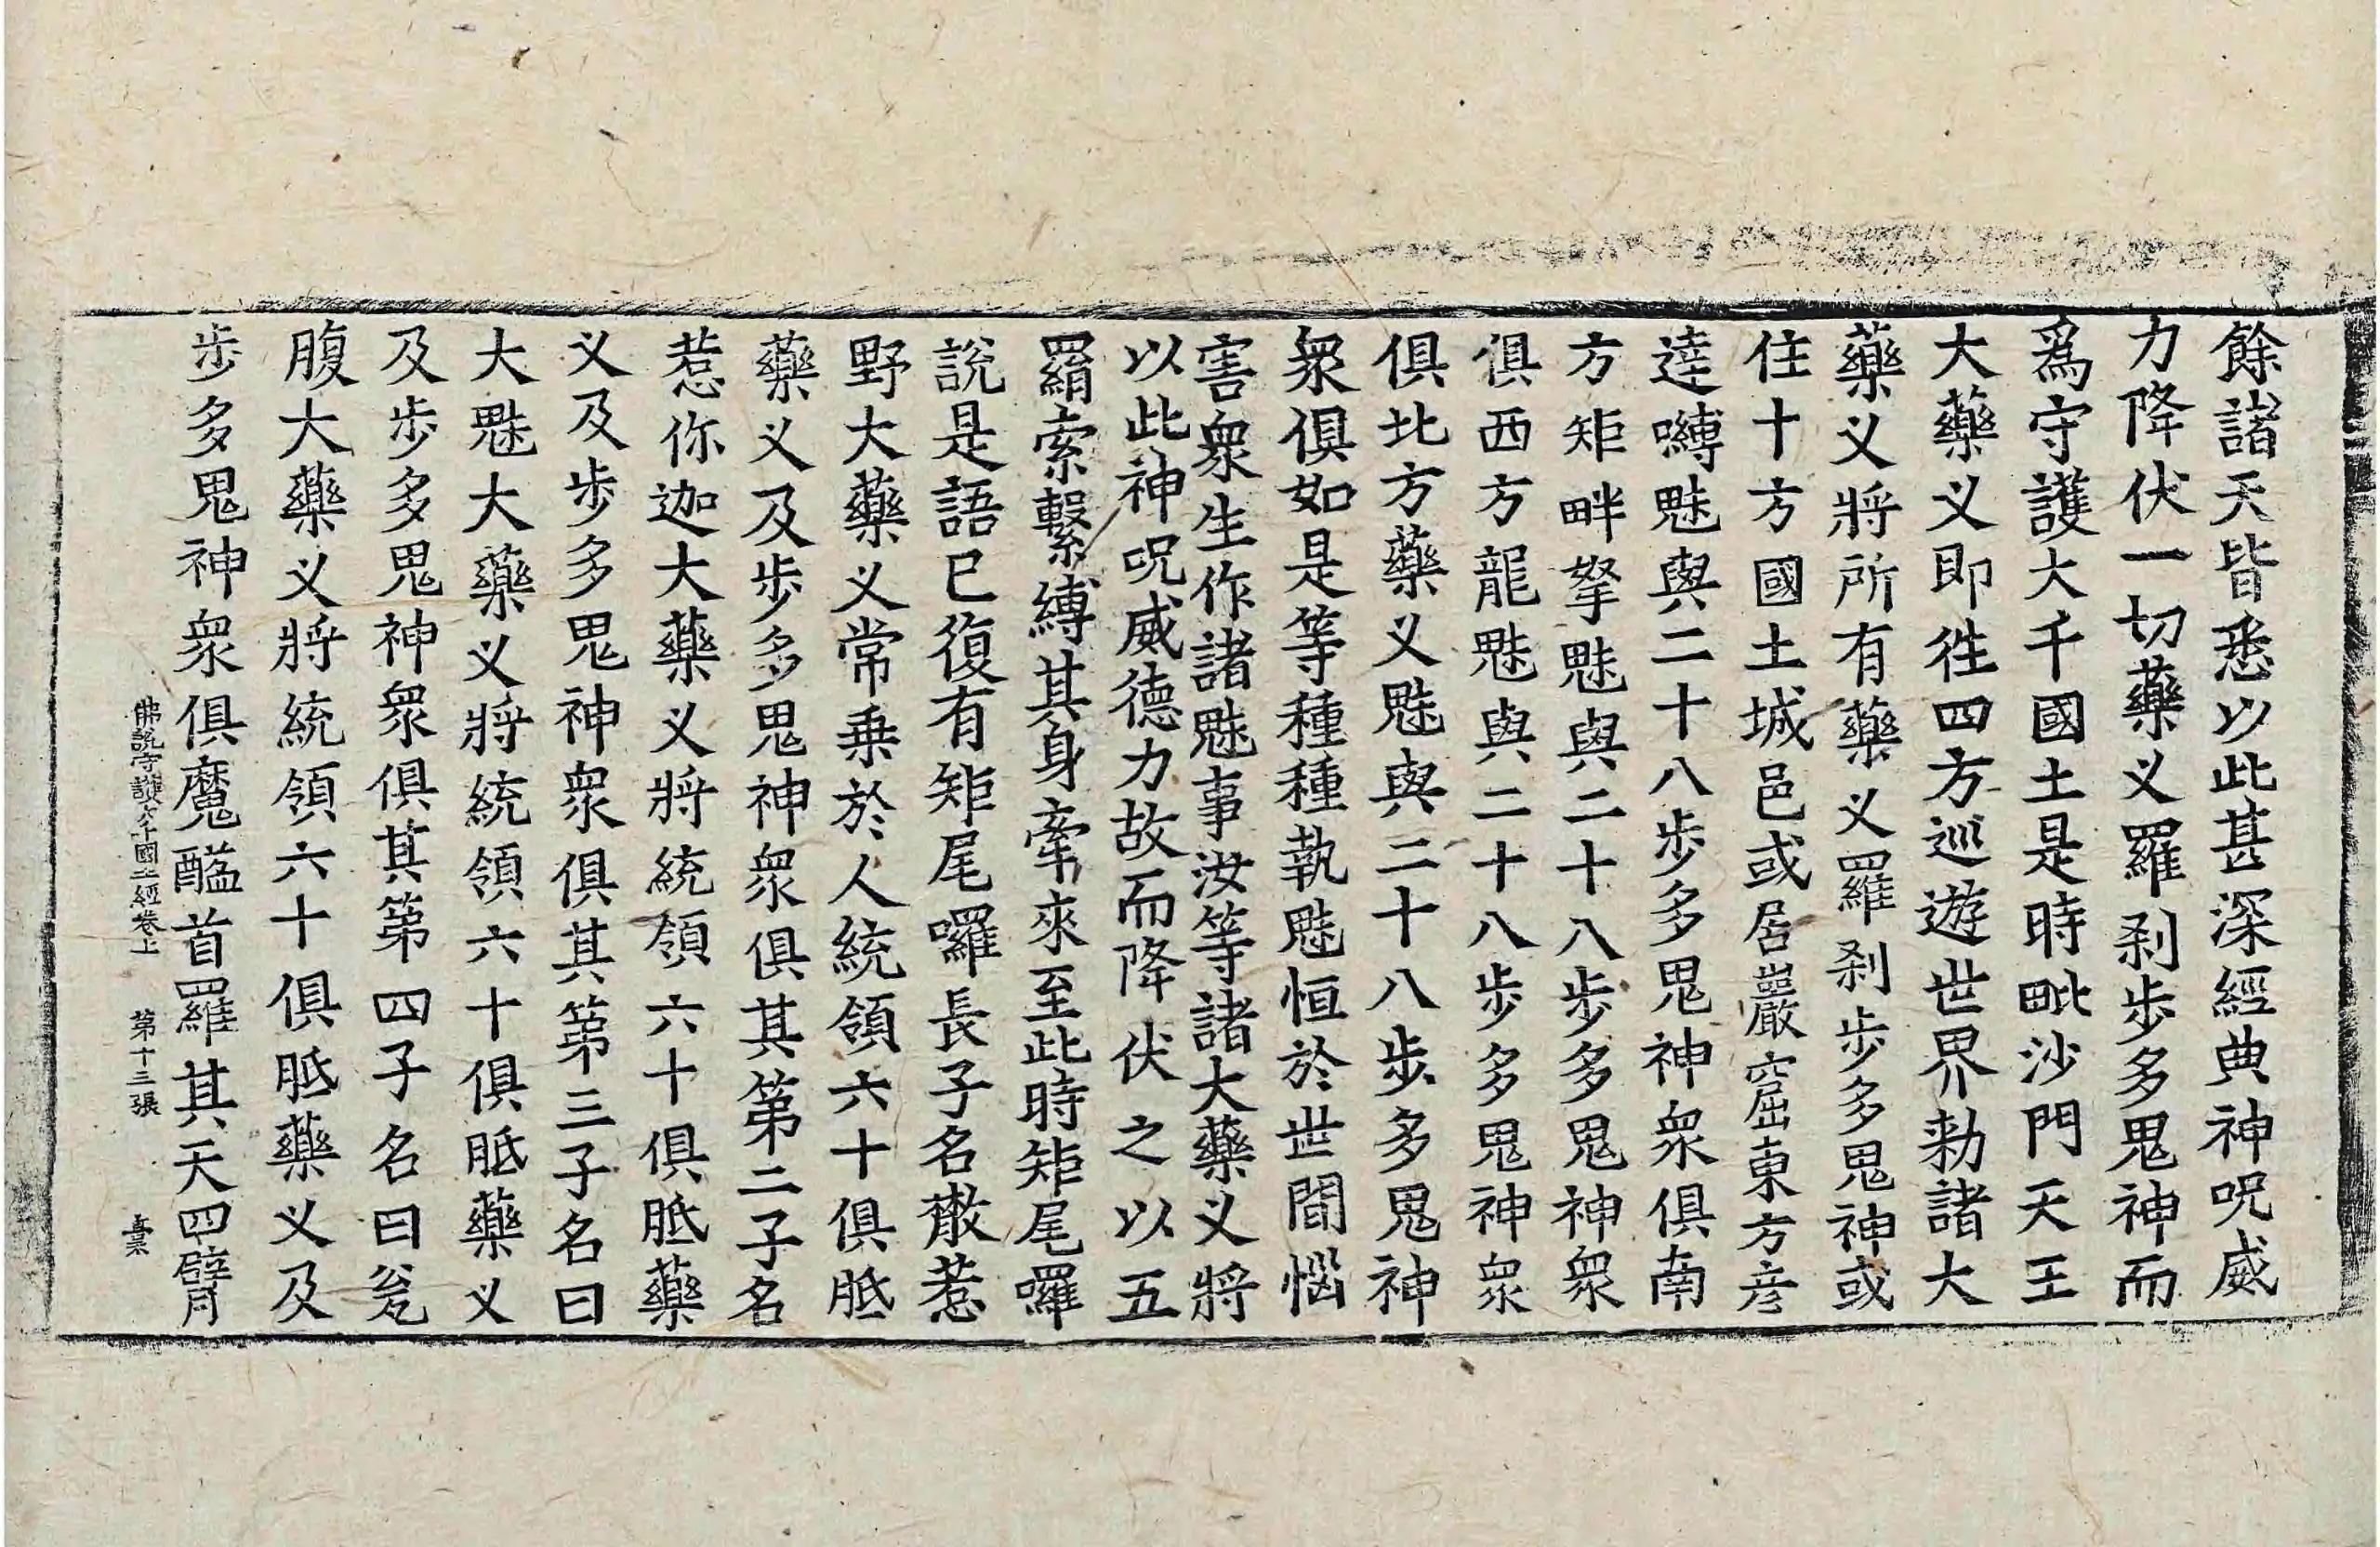 餘諸天皆悉以此甚深經典神呪威
力降伏一切藥义羅刹步多鬼神而
爲守護大千國土是時毗沙門天王
大藥义即往四方巡遊世界勑諸大
藥义將所有藥义羅刹步多鬼神或
住十方國土城邑或居巖窟東方彦
達嚩魅與二十八步多鬼神衆俱南
方矩畔拏魅與二十八步多鬼神衆
俱西方龍魅與二十八步多鬼神衆
俱北方藥义魅與二十八步多鬼神
衆俱如是等種種執魅恒於世間惱
害衆生作諸魅事汝等諸大藥义將
以此神呪威德力故而降伏之以五
羂索繫縛其身牽來至此時矩尾囉
說是語已復有矩尾囉長子名散惹
野大藥义常乗於人統領六十俱胝
藥义及步多鬼神衆俱其第二子名
惹你迦大藥义將統領六十俱胝藥
义及步多鬼神衆俱其第三子名曰
大魅大藥义將統領六十俱胝藥义
及步多鬼神衆俱其第四子名曰瓮
腹大藥义將統領六十俱胝藥义及
步多鬼神衆俱魔醯首羅其天四臂
佛說守護大千國土經卷上 第十三張